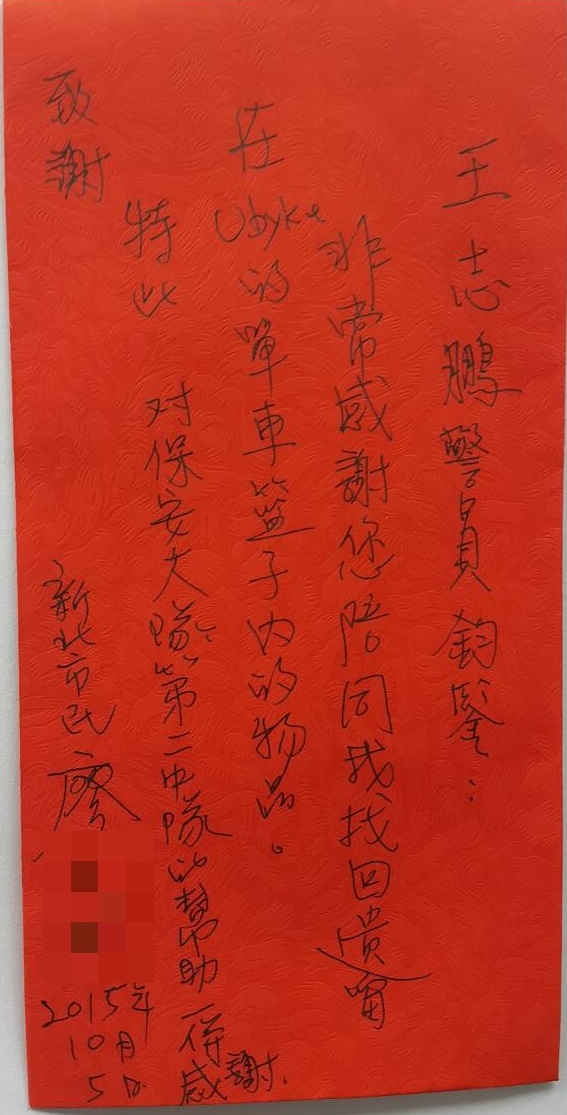 王志鵬警員鈞鑒：
非常感謝您陪同我找回遺留
在Ubyke的單車籃子內的物品。
特此 对保安大隊第二中隊的幫助一併感謝.
致謝
新北市民廖
2015年
10月
5日